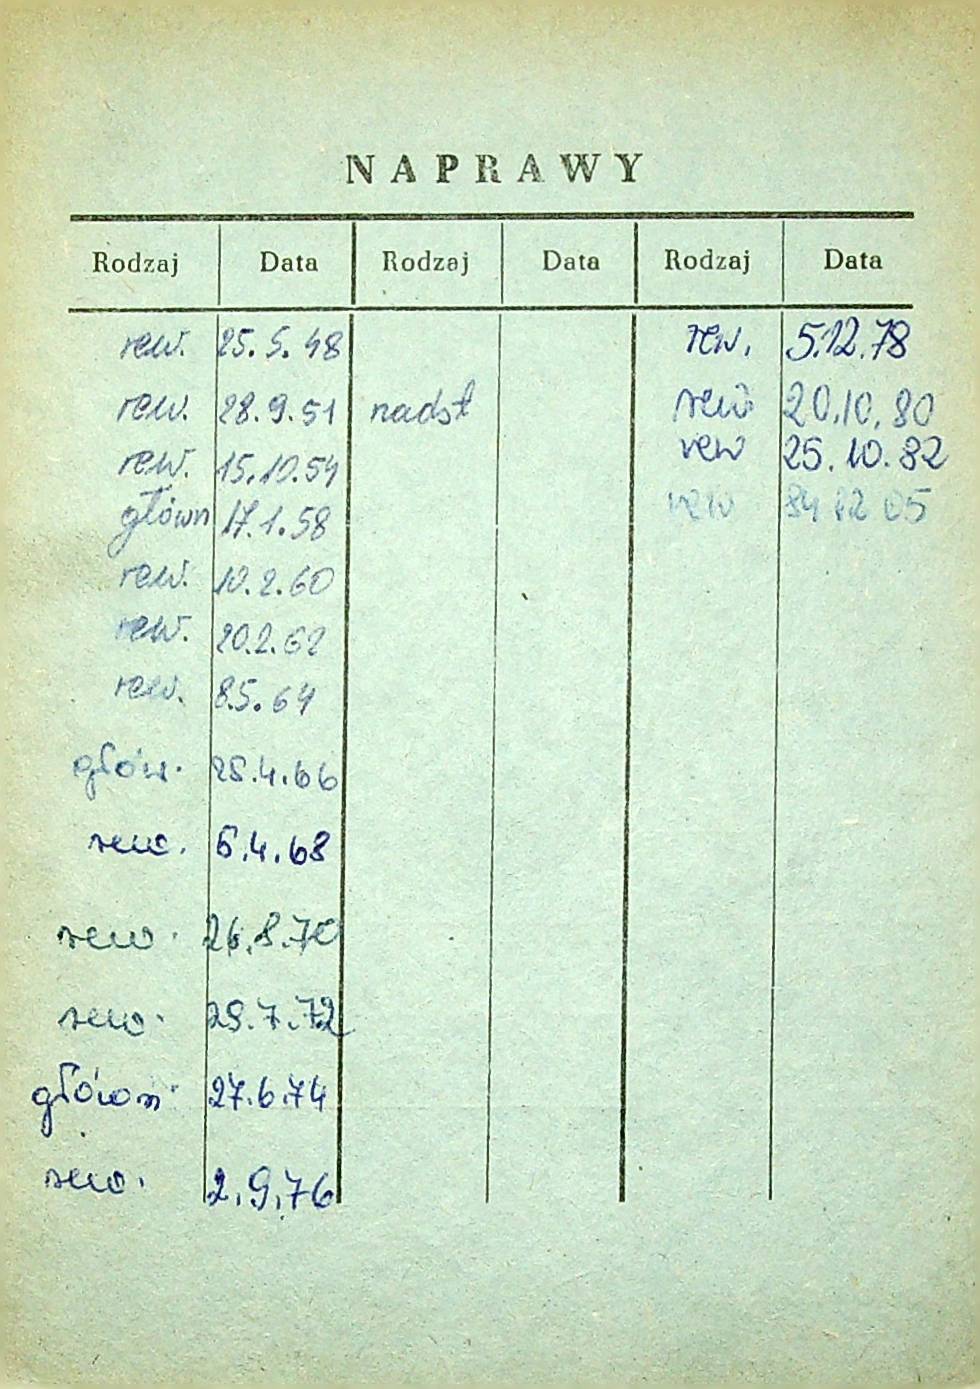 NAPRAWY
Rodzaj Data Rodzaj Data Rodzaj Data
rew. 25.5.48 rew. 5.12.78
rew. 28.9.51 nadst rew. 20.10.80
rew. 15.10.54 rew 25.10.82
główn 17.1.58 rew
rew. 10.2.60
rew. 20.2.62
rew. 8.5.64
głów. 25.4.66
rew. 6.4.68
rew. 26.8.70
rew. 29.7.72
główn. 27.6.74
rew. 2.9.76